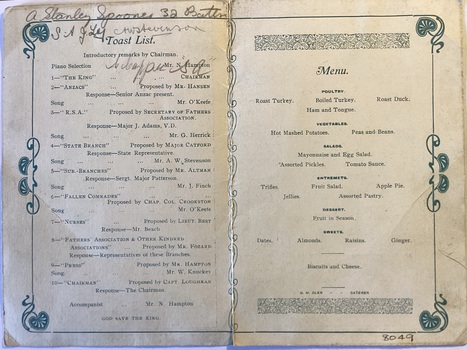 A Stanley Spooner 32 Battn
Toast List.
Introductory remarks by Chairman.
Piano Selection ... ... Mr. N. Hampton
1—"The King" ... ... Chairman
2—"Anzacs" Proposed by Mr. Hansen
Response—Senior Anzac present.
Song ... ... Mr. O'Keefe
3—"R.S.A." Proposed by Secretary of Fathers Association.
Response—Major J. Adams, V.D.
Song ... ... G. Herrick
4—"State Branch" Proposed by Major Catford
Response—State Representative.
Song ... ... Mr. A. W. Stevenson
5—"Sub-Branches" Proposed by Mr. Altman
Response—Sergt. Major Patterson.
Song ... ... Mr. J. Finch
6—"Fallen Comrades"
Proposed by Chap. Col. Crookston
Song ... ... Mr. O'Keefe
7—"Nurses" Proposed by Lieut. Bert
Response—Mr. Beach
8—"Fathers' Association & Other Kindred
Associations" Proposed by Mr. Fozard
Response—Representatives of these Branches.
9—"Press" Proposed by Mr. Hampton
Song. ... Mr. W. Knuckey
10—"Chairman" Proposed by Capt. Loughran
Response—The Chairman.
Accompanist Mr. N. Hampton
GOD SAVE THE KING.
Menu.
POULTRY.
Roast Turkey. Boiled Turkey. Roast Duck.
Ham and Tongue.
VEGETABLES.
Hot Mashed Potatoes. Peas and Beans.
SALADS.
Mayonnaise and Egg Salad.
Assorted Pickles. Tomato Sauce.
ENTREMETS.
Trifles. Fruit Salad. Apple Pie.
Jellies. Assorted Pastry.
DESSERT.
Fruit in Season.
SWEETS.
Dates. Almonds. Raisins. Ginger.
Biscuits and Cheese.
CATERER
8049